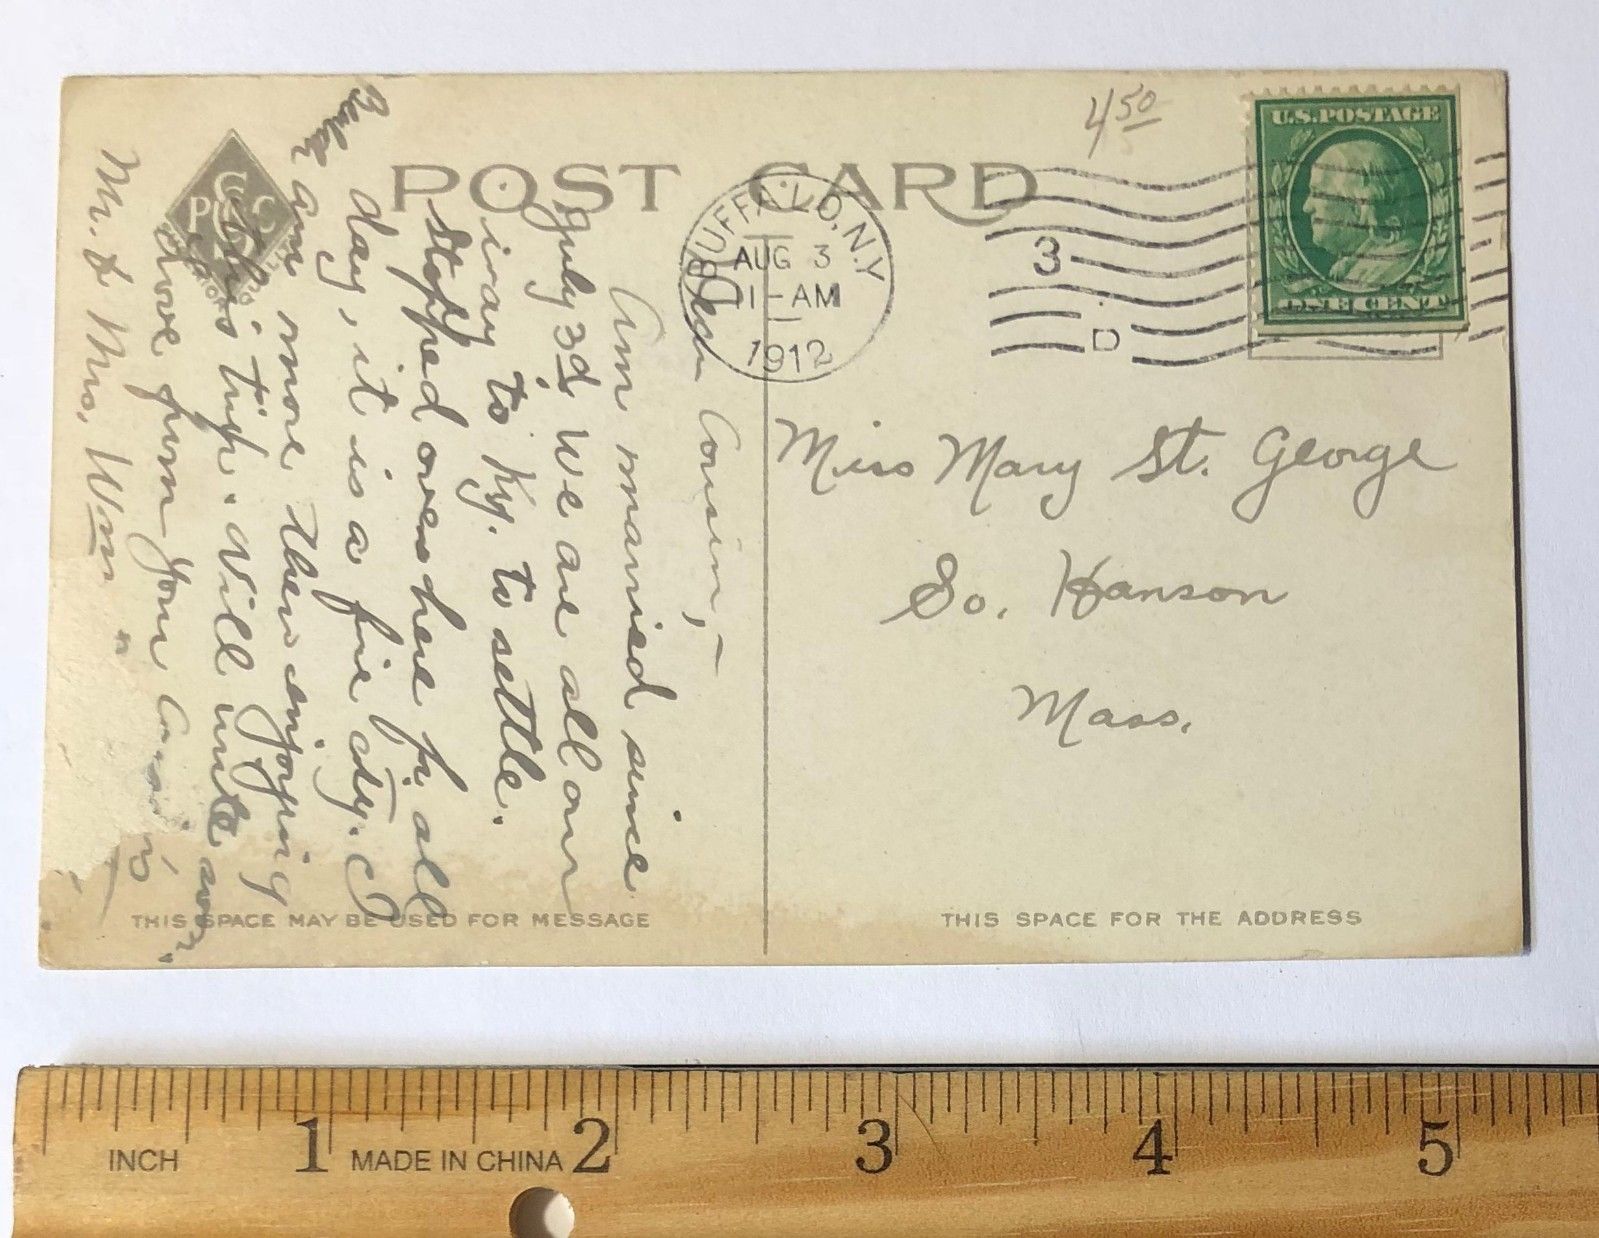 POST CARD
4 50
U.S. POSTAGE
ONE CENT
BUFFALO, N.Y.
AUG 3
11-AM
1912
3
D
Dear Cousin,-
Am married since
July 3d. We are all our
way to Ky. to settle.
Stopped over here for all
day, it is a fine city. I
am more then enjoying
this trip. Will write soon.
Love from your Cousins
Mr. & Mrs. Wm
Miss Mary St. George
So. Hanson
Mass.
THIS SPACE MAY BE USED FOR MESSAGE
THIS SPACE FOR THE ADDRESS
1 2 3 4 5
INCH MADE IN CHINA